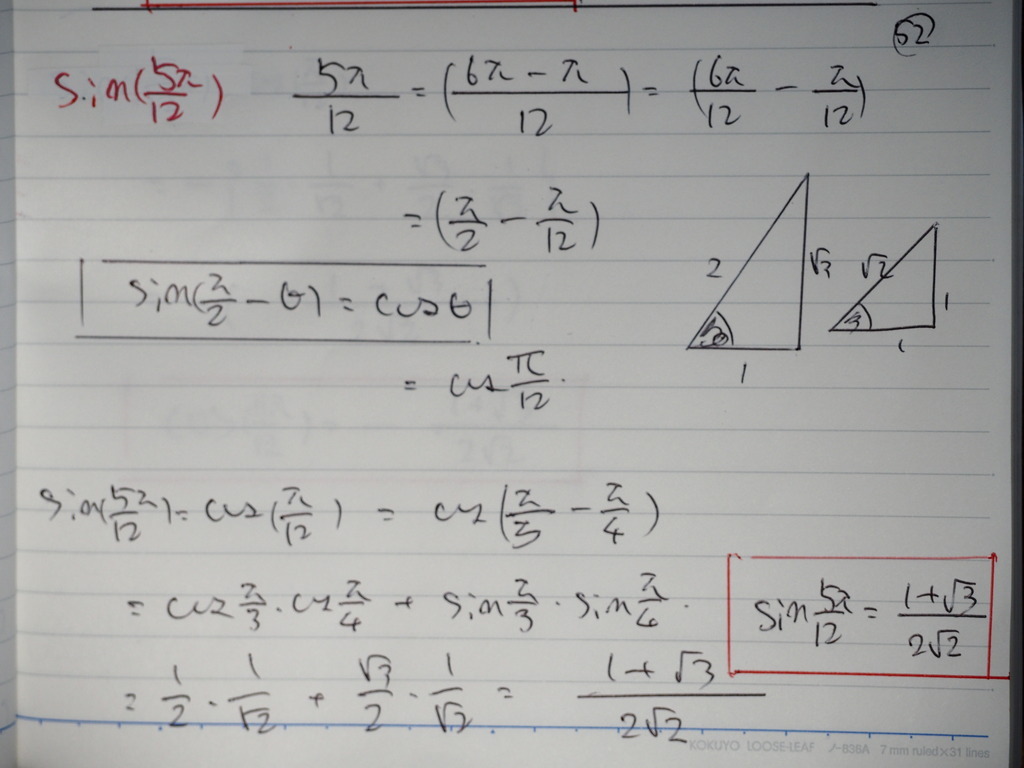 62
sin(5π/12) 5π/12 = (6π - π/12) = (6π/12 - π/12)
= (π/2 - π/12)
sin(π/2 - θ) = cosθ
2 √3 1
√2 1 1
= cos π/12.
sin(5π/12) = cos(π/12) = cos(π/3 - π/4)
= cos π/3 · cos π/4 + sin π/3 · sin π/4.
= 1/2 · 1/√2 + √3/2 · 1/√2 = 1+√3/2√2
sin 5π/12 = 1+√3/2√2
KOKUYO LOOSE-LEAF ノ-836A 7 mm ruled×31 lines